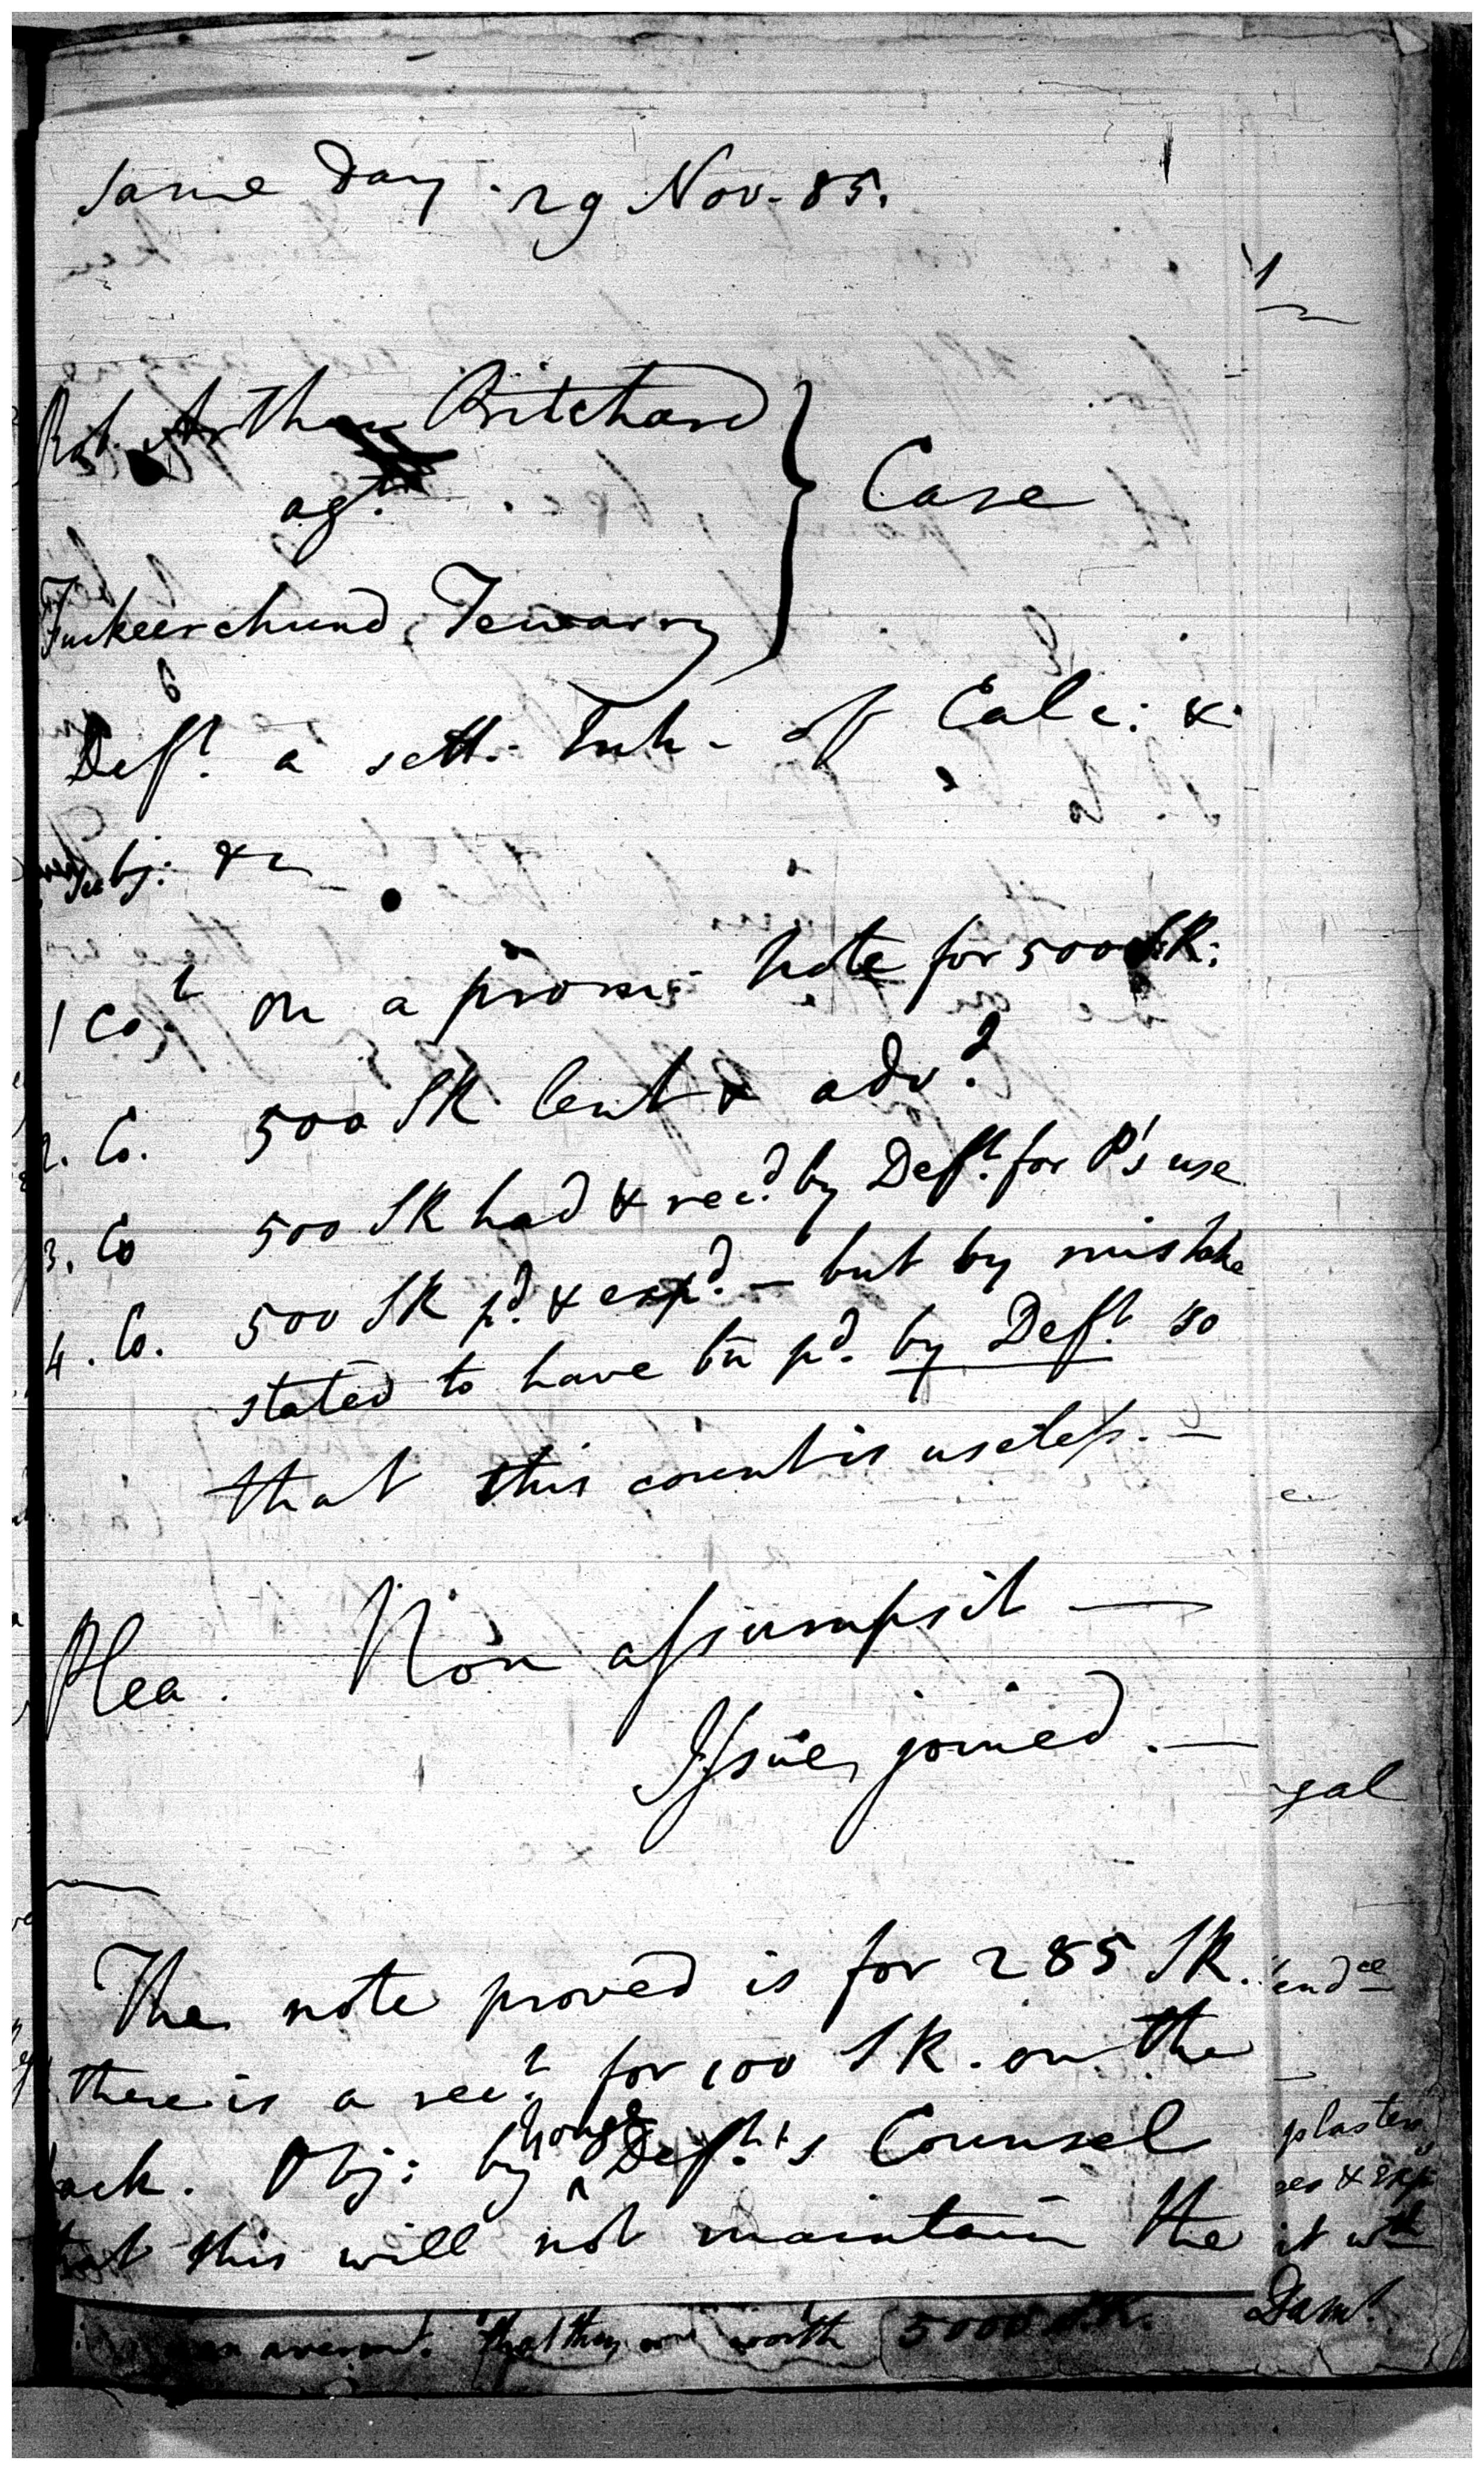 same day. 29 Nov. 85.
Rob. Arthur Pritchard
agt. } Case
Fukeerchund Tewarry
Deft. a sett. Inh. of Calc: &
Subj: &c
1 Cot. on a promi- note for 500 SR:
2. Co. 500 SR lent & advd.
3. Co 500 SR had & recd. by Deft. for P's use
4. Co. 500 SR pd. & expd. — but by mistake
stated to have bn pd. by Deft. so
that this count is useless. —
Plea. Non assumpsit —
Issue joined. —
The note proved is for 285 SR.
there is a rect. for 100 SR. on the
back. Obj: by Deft's Counsel
that this will not maintain the
gal
endce
plasters
res & exp
it wth
Dam.
that they were worth 5000 S.R.